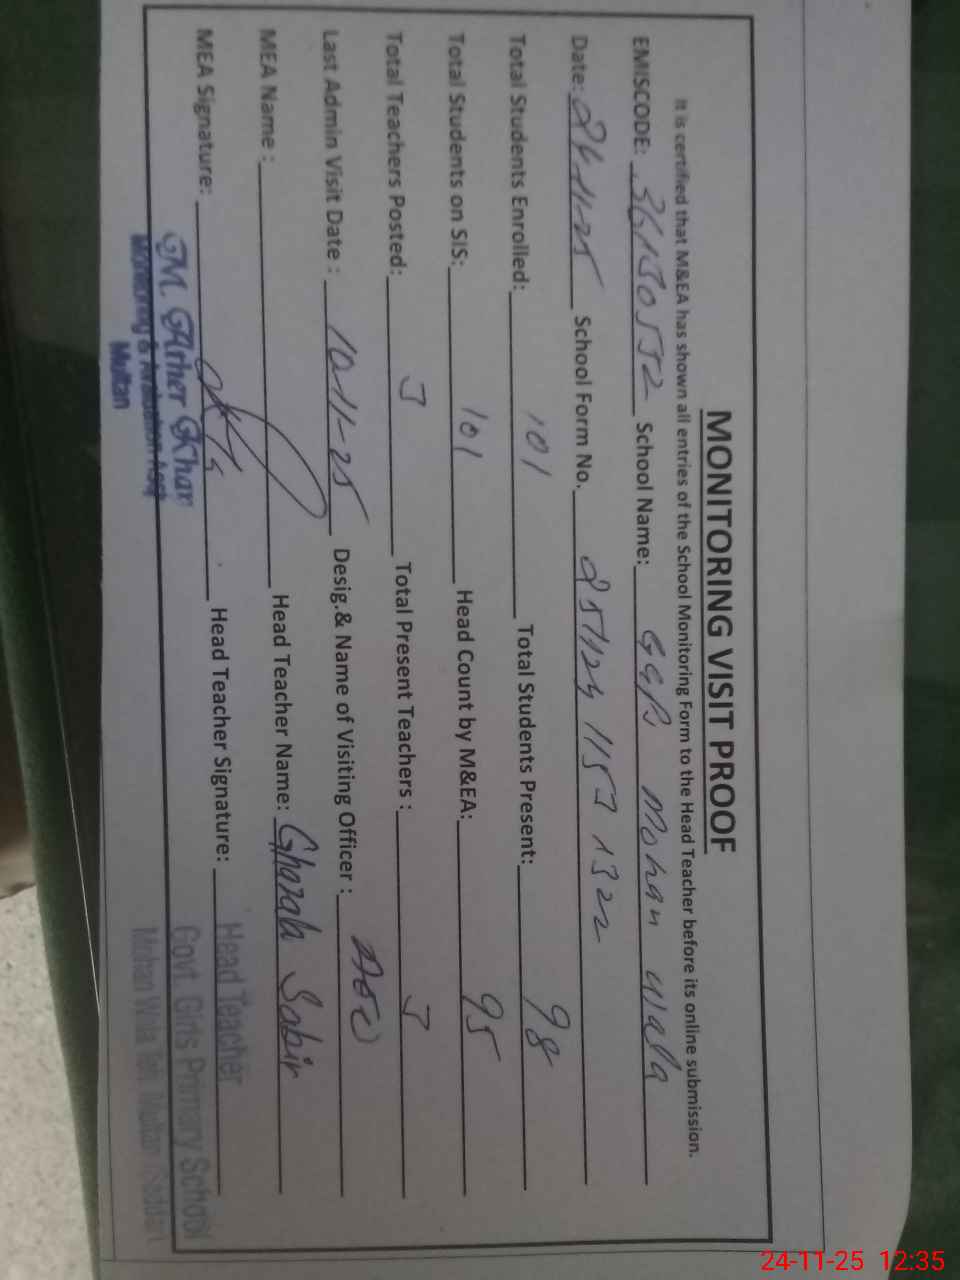 MONITORING VISIT PROOF
It is certified that M&EA has shown all entries of the School Monitoring Form to the Head Teacher before its online submission.
EMISCODE: 36130532 School Name: GGPS Mohan Wala
Date: 24-11-25 School Form No. 251124 1153 1322
Total Students Enrolled: 101 Total Students Present: 98
Total Students on SIS: 101 Head Count by M&EA: 95
Total Teachers Posted: 3 Total Present Teachers : 3
Last Admin Visit Date : 10-11-25 Desig.& Name of Visiting Officer : AEO
MEA Name : Head Teacher Name: Ghazala Sabir
MEA Signature: Head Teacher Signature:
M. Ather Khan
Monitoring &
Multan
Head Teacher
Govt. Girls Primary School
Mohan Wala Teh. Multan Saddar
24-11-25 12:35